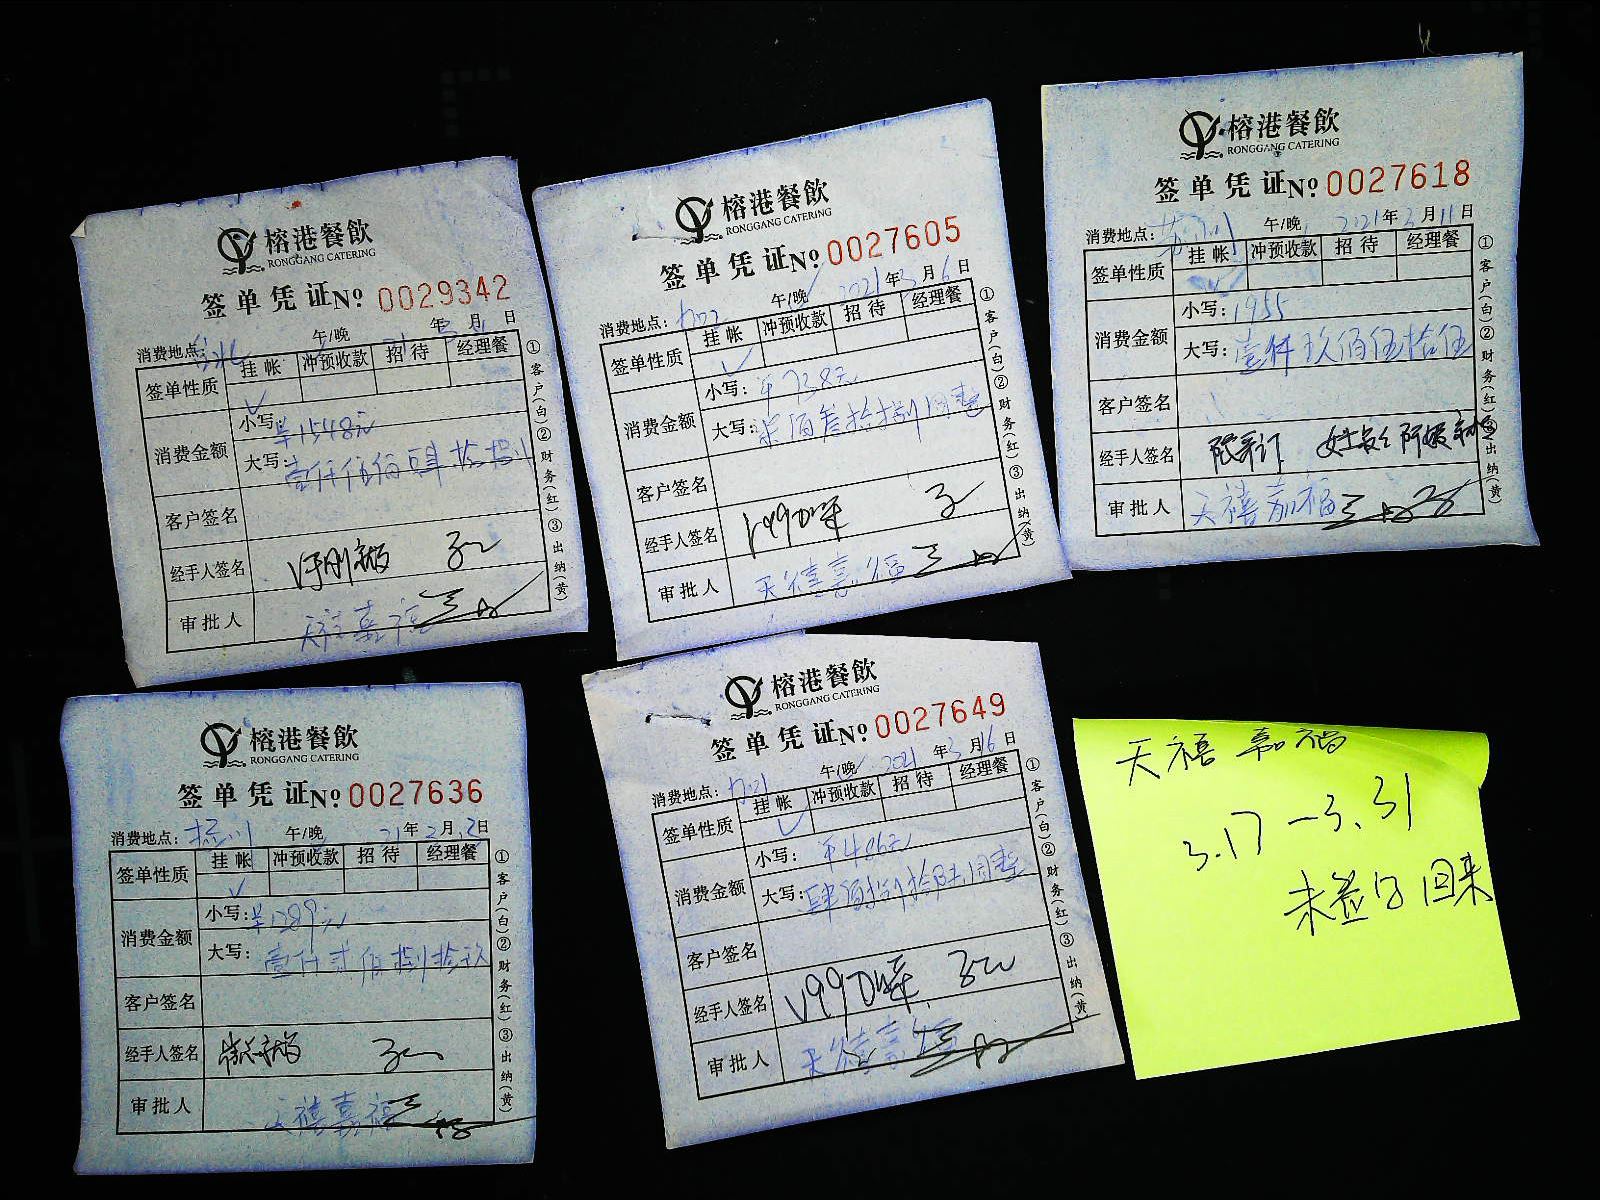 榕港餐飲
RONGGANG CATERING
签单凭证№ 0029342
消费地点: 台北 午/晚 21年3月1日
签单性质 挂帐 冲预收款 招待 经理餐
✓
消费金额 小写: ¥1548元
大写: 壹仟伍佰肆拾捌
客户签名
经手人签名
审批人 天禧嘉福
①客户(白)②财务(红)③出纳(黄)
榕港餐飲
RONGGANG CATERING
签单凭证№ 0027605
消费地点: 午/晚 2021年3月6日
签单性质 挂帐 冲预收款 招待 经理餐
✓
消费金额 小写: ¥738元
大写: 柒佰叁拾捌圆整
客户签名
经手人签名
审批人 天禧嘉福
①客户(白)②财务(红)③出纳(黄)
榕港餐飲
RONGGANG CATERING
签单凭证№ 0027618
消费地点: 午/晚 2021年3月11日
签单性质 挂帐 冲预收款 招待 经理餐
✓
消费金额 小写: 1955
大写: 壹仟玖佰伍拾伍
客户签名
经手人签名
审批人 天禧嘉福
①客户(白)②财务(红)③出纳(黄)
榕港餐飲
RONGGANG CATERING
签单凭证№ 0027636
消费地点: 午/晚 21年2月12日
签单性质 挂帐 冲预收款 招待 经理餐
✓
消费金额 小写: ¥1289元
大写: 壹仟贰佰捌拾玖
客户签名
经手人签名
审批人 天禧嘉福
①客户(白)②财务(红)③出纳(黄)
榕港餐飲
RONGGANG CATERING
签单凭证№ 0027649
消费地点: 午/晚 2021年3月16日
签单性质 挂帐 冲预收款 招待 经理餐
✓
消费金额 小写: ¥486元
大写: 肆佰捌拾陆圆整
客户签名
经手人签名
审批人 天禧嘉福
①客户(白)②财务(红)③出纳(黄)
天禧嘉福
3.17-3.31
未签字回来